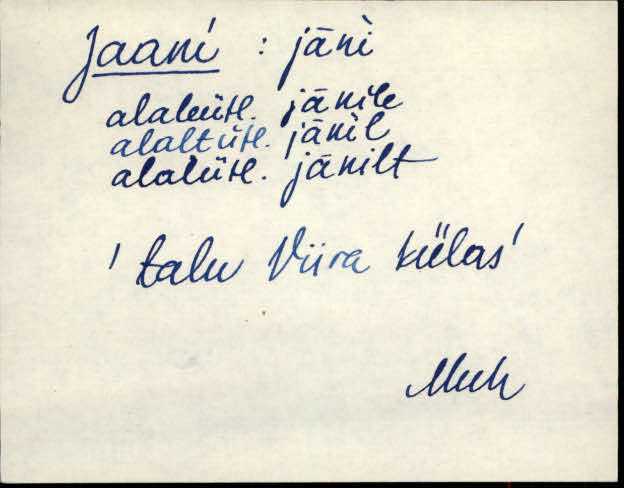 Jaani : jāni
alaleütl. jānile
alaltütl. jānil
alalütl. jānilt
' talu Viira külas '
Muh